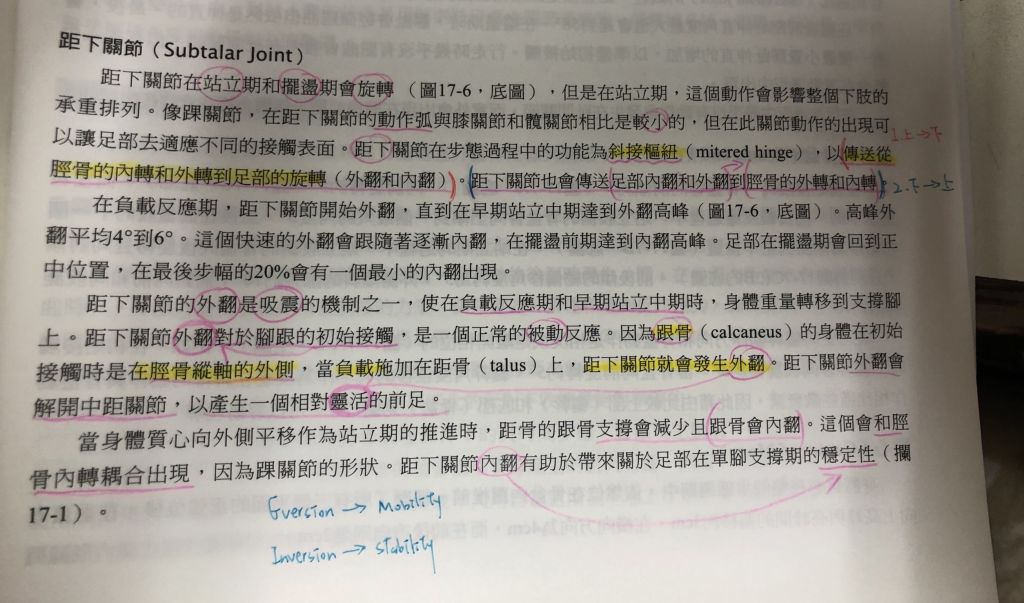 距下關節（Subtalar Joint）
距下關節在站立期和擺盪期會旋轉（圖17-6，底圖），但是在站立期，這個動作會影響整個下肢的
承重排列。像踝關節，在距下關節的動作弧與膝關節和髖關節相比是較小的，但在此關節動作的出現可
以讓足部去適應不同的接觸表面。距下關節在步態過程中的功能為斜接樞紐（mitered hinge），以傳送從
1上→下
脛骨的內轉和外轉到足部的旋轉（外翻和內翻）。距下關節也會傳送足部內翻和外翻到脛骨的外轉和內轉。
2.下→上
在負載反應期，距下關節開始外翻，直到在早期站立中期達到外翻高峰（圖17-6，底圖）。高峰外
翻平均4°到6°。這個快速的外翻會跟隨著逐漸內翻，在擺盪前期達到內翻高峰。足部在擺盪期會回到正
中位置，在最後步幅的20%會有一個最小的內翻出現。
距下關節的外翻是吸震的機制之一，使在負載反應期和早期站立中期時，身體重量轉移到支撐腳
上。距下關節外翻對於腳跟的初始接觸，是一個正常的被動反應。因為跟骨（calcaneus）的身體在初始
接觸時是在脛骨縱軸的外側，當負載施加在距骨（talus）上，距下關節就會發生外翻。距下關節外翻會
解開中距關節，以產生一個相對靈活的前足。
當身體質心向外側平移作為站立期的推進時，距骨的跟骨支撐會減少且跟骨會內翻。這個會和脛
骨內轉耦合出現，因為踝關節的形狀。距下關節內翻有助於帶來關於足部在單腳支撐期的穩定性（攔
17-1）。
Eversion → Mobility
Inversion → stability